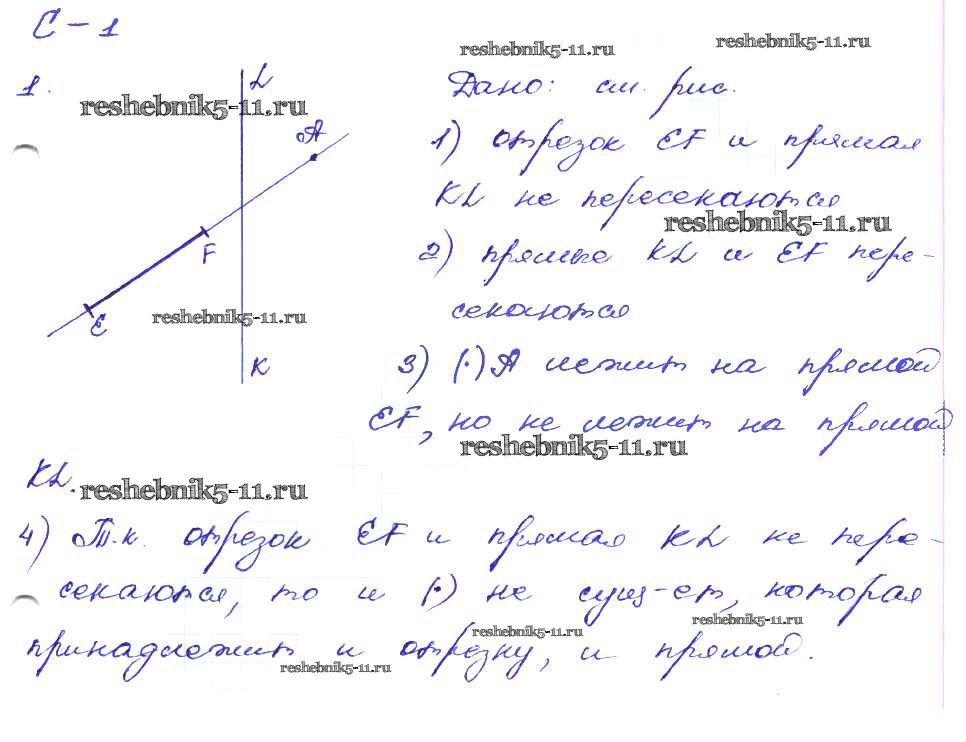 С-1
reshebnik5-11.ru
reshebnik5-11.ru
1.
L
reshebnik5-11.ru
Дано: см. рис.
A
1) отрезок EF и прямая
KL не пересекаются
reshebnik5-11.ru
F
2) прямые KL и EF пере-
E
reshebnik5-11.ru
секаются
K
3) (·) A лежит на прямой
EF, но не лежит на прямой
reshebnik5-11.ru
KL.
reshebnik5-11.ru
4) Т.к. отрезок EF и прямая KL не пере-
секаются, то и (·) не сущ-ет, которая
reshebnik5-11.ru
reshebnik5-11.ru
принадлежит и отрезку, и прямой.
reshebnik5-11.ru